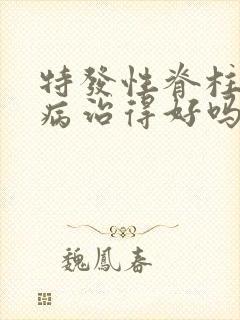 特發性脊柱
病治得好嗎
魏鳳春